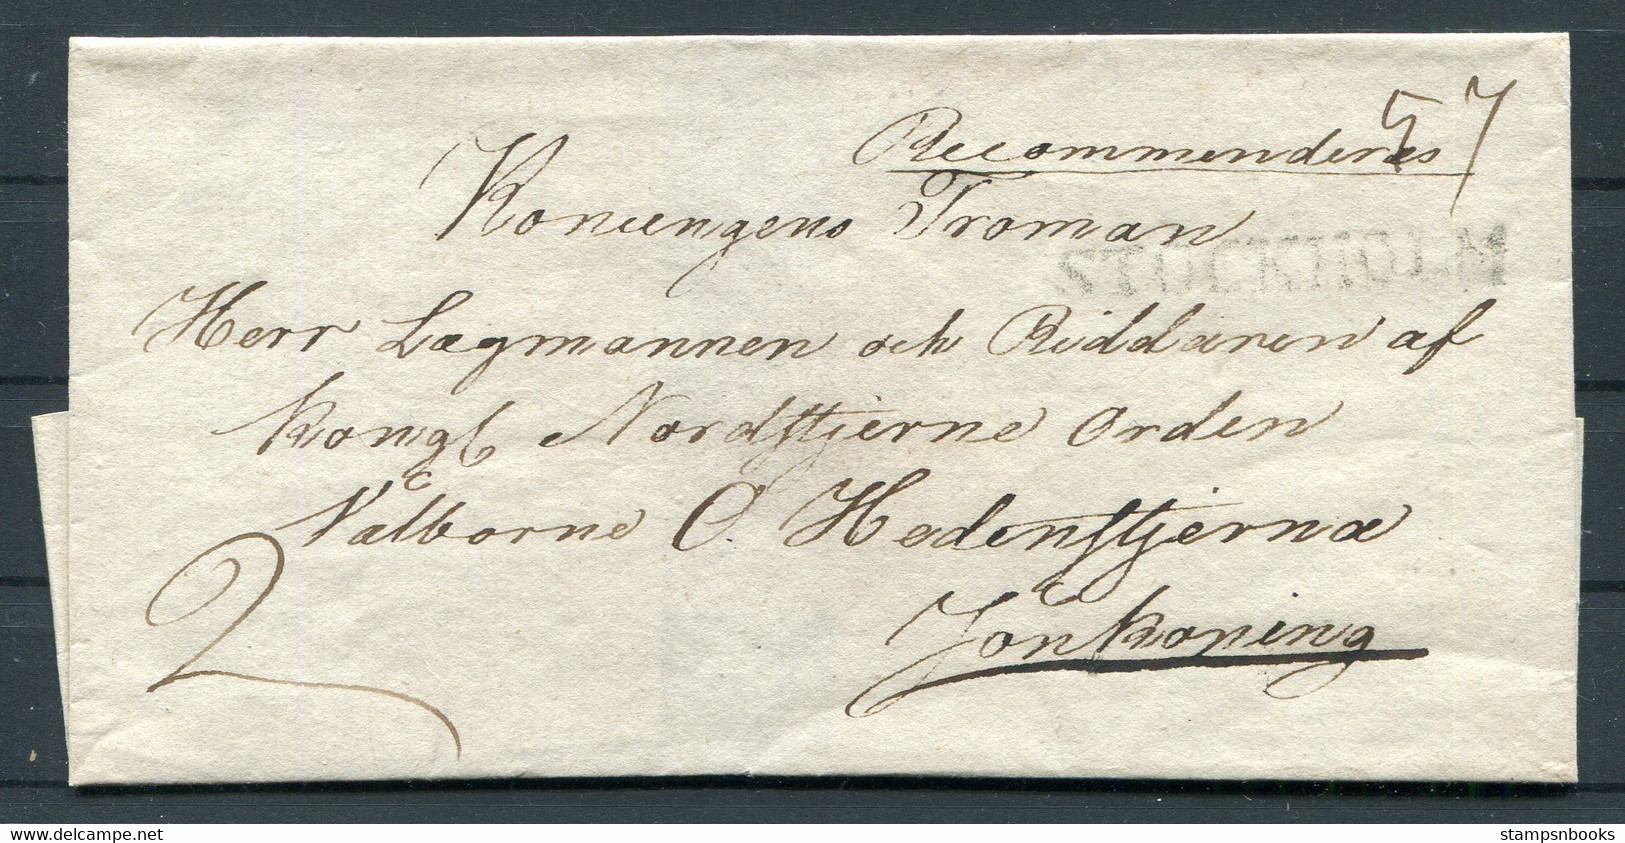 57
Recommenderas
Konungens Troman
Herr Lagmannen och Riddaren af
Kongl Nordstjerne Orden
Välborne C. Hedenstjerna
Jönköping
2
stampsnbooks